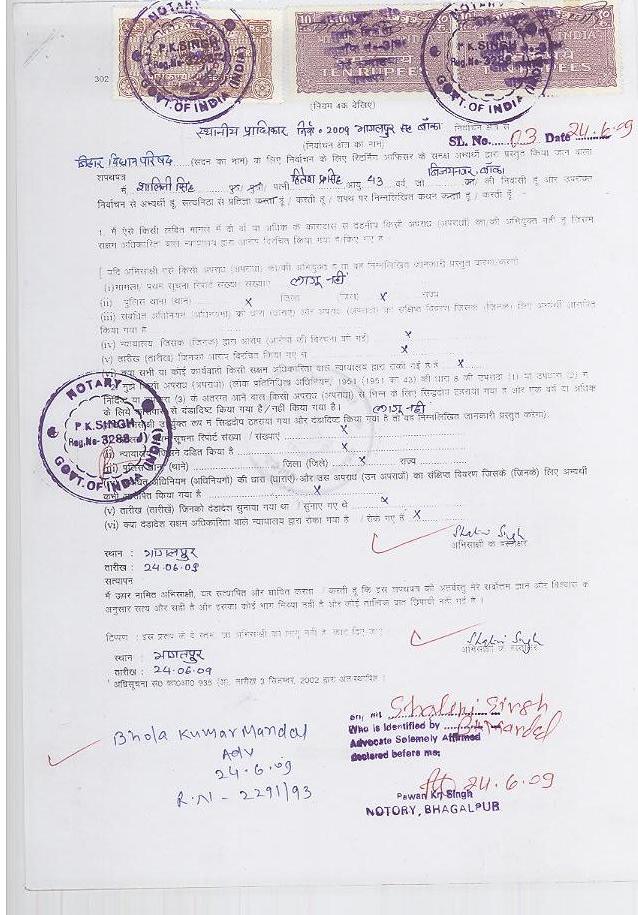 NOTARY
P.K.SINGH
Reg.No-3288
GOVT.OF INDIA (INDIA)
NOTARY
P.K.SINGH
Reg.No-3288
GOVT.OF INDIA (INDIA)
TEN RUPEES
TEN RUPEES
302
(नियम 4क देखिए)
स्थानीय प्राधिकार निर्वा॰ 2009 भागलपुर सह बाँका निर्वाचन क्षेत्र से
(निर्वाचन क्षेत्र का नाम)
SL. No. 03 Date 24.6.09
बिहार विधान परिषद (सदन का नाम) के लिए निर्वाचन के लिए रिटर्निंग आफिसर के समक्ष अभ्यर्थी द्वारा प्रस्तुत किया जाने वाला
शपथपत्र
मैं शालिनी सिंह पत्नी आयु 43 वर्ष, जो विजयनगर, बाँका का/की निवासी हूं और उपरोक्त
निर्वाचन से अभ्यर्थी हूं, सत्यनिष्ठा से प्रतिज्ञा करता हूं / करती हूं / शपथ पर निम्नलिखित कथन करता हूं / करती हूं :-
1. मैं ऐसे किसी लंबित मामले में दो वर्ष या अधिक के कारावास से दंडनीय किसी अपराध (अपराधों) का/की अभियुक्त नहीं हूं जिसमें
सक्षम अधिकारिता वाले न्यायालय द्वारा आरोप विरचित किया गया है/किए गए हैं
(i) मामला/ प्रथम सूचना रिपोर्ट संख्या/ संख्याएं लागू नहीं
(ii) पुलिस थाना (थाने) x जिला (जिले) x राज्य
(iii) संबंधित अधिनियम (अधिनियमों) की धारा (धाराएं) और अपराध (अपराधों) का संक्षिप्त विवरण जिसके (जिनके) लिए अभ्यर्थी आरोपित
किया गया है
(iv) न्यायालय जिसके द्वारा आरोप (आरोपों की विरचना की गई) x
(v) तारीख (तारीखें) जिनको आरोप विरचित किया गया था x
(vi) क्या सभी या कोई कार्यवाही किसी सक्षम अधिकारिता वाले न्यायालय द्वारा रोकी गई है x
मुझे किसी अपराध (अपराधों) (लोक प्रतिनिधित्व अधिनियम, 1951 (1951 का 43) की धारा 8 की उपधारा (1) या उपधारा (2) में
निर्दिष्ट या उपधारा (3) के अंतर्गत आने वाले किसी अपराध (अपराधों) से भिन्न के लिए सिद्धदोष ठहराया गया है और एक वर्ष या अधिक
के लिये कारावास से दंडादिष्ट किया गया है/नहीं किया गया है। लागू नहीं
उपर्युक्त रूप में सिद्धदोष ठहराया गया और दंडादिष्ट किया गया है तो वह निम्नलिखित जानकारी प्रस्तुत करेगा:)
सूचना रिपोर्ट संख्या / संख्याएं x
(ii) न्यायालय जिसने दंडित किया है x
(iii) पुलिस थाना (थाने) जिला (जिले) x राज्य
अधिनियम (अधिनियमों) की धारा (धाराएं) और उस अपराध (उन अपराधों) का संक्षिप्त विवरण जिसके (जिनके) लिए अभ्यर्थी
आरोपित किया गया है x
(v) तारीख (तारीखें) जिनको दंडादेश सुनाया गया था / सुनाए गए थे x
(vi) क्या दंडादेश सक्षम अधिकारिता वाले न्यायालय द्वारा रोका गया है / रोके गए हैं x
NOTARY
P.K.SINGH
Reg.No-3288
GOVT.OF INDIA (INDIA)
Shalini Singh
अभिसाक्षी के हस्ताक्षर
स्थान : भागलपुर
तारीख : 24.06.09
सत्यापन
मैं ऊपर नामित अभिसाक्षी, यह सत्यापित और घोषित करता / करती हूं कि इस शपथपत्र की अंतर्वस्तु मेरे सर्वोत्तम ज्ञान और विश्वास के
अनुसार सत्य और सही है और इसका कोई भाग मिथ्या नहीं है और कोई तात्विक बात छिपायी नहीं गई है।
Shalini Singh
अभिसाक्षी के हस्ताक्षर
स्थान : भागलपुर
तारीख : 24.06.09
तारीख 3 सितम्बर, 2002 द्वारा अंतःस्थापित।
Shalini Singh
Who is Identified by B.K. Mandal
Advocate Solemely Affirmed
declared before me,
Bhola Kumar Mandal
Adv
24.6.09
R.N - 2291/93
24.6.09
Pawan Kr. Singh
NOTORY, BHAGALPUR